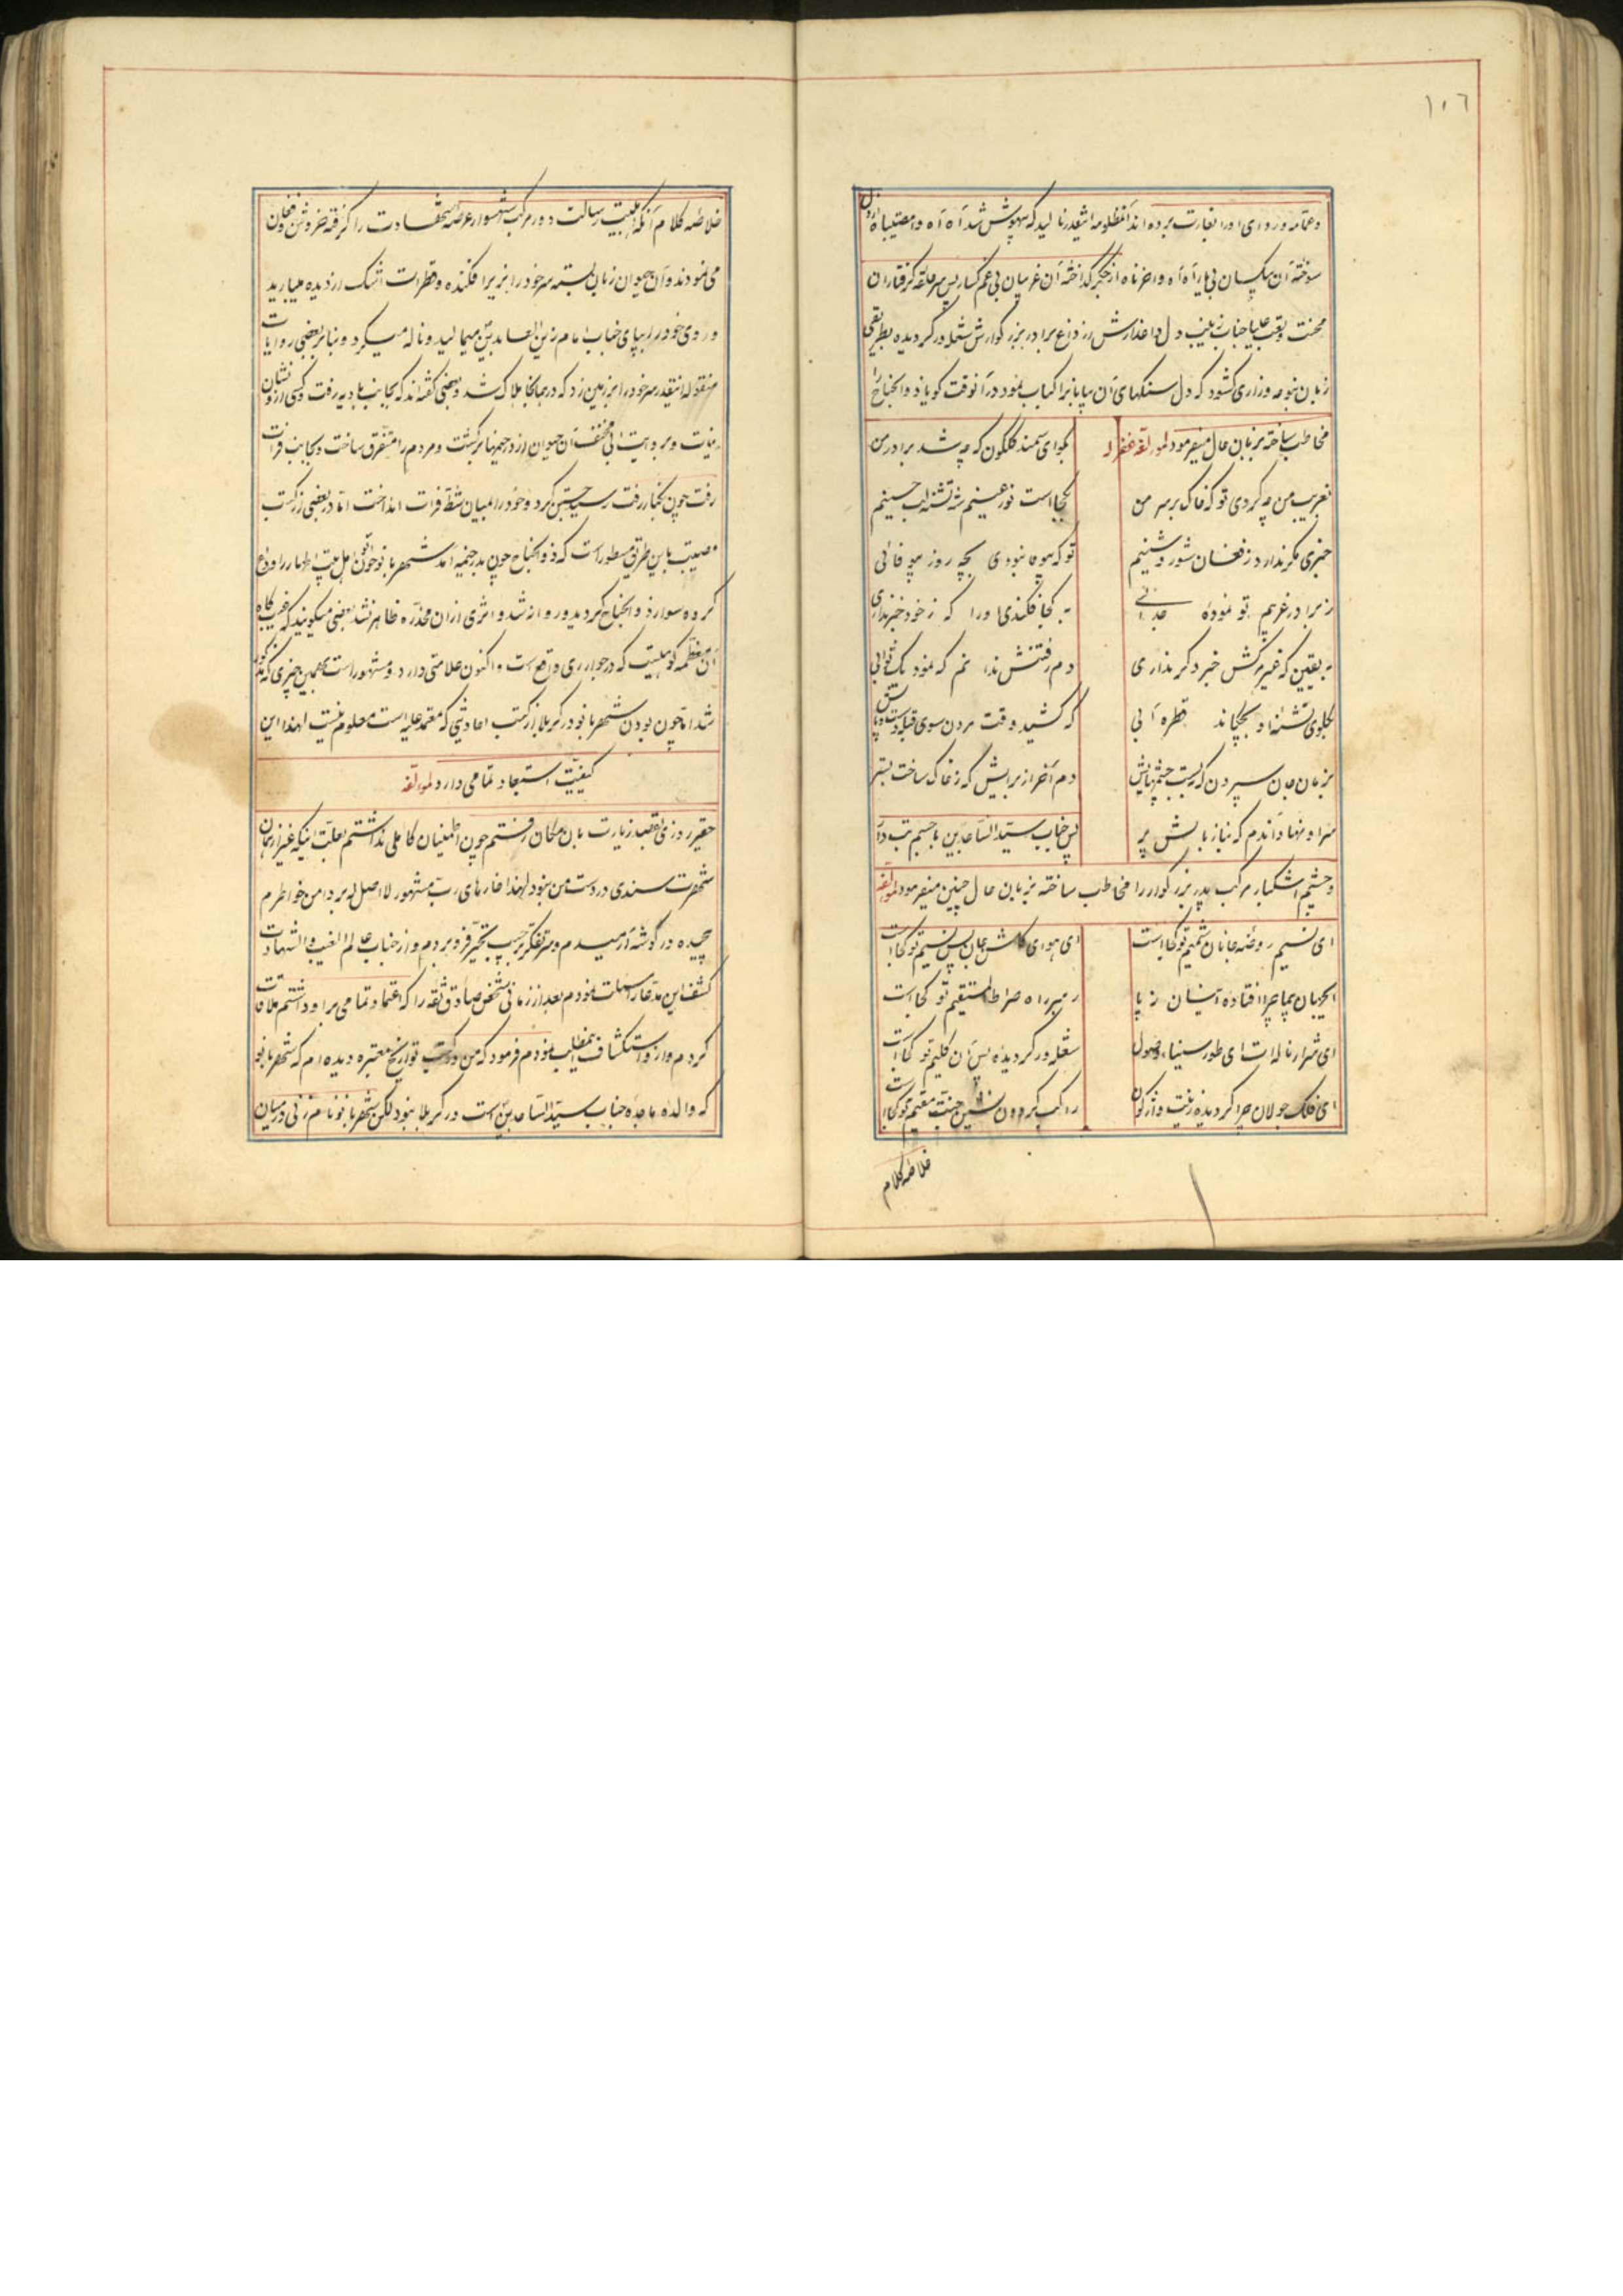 ١٠٦
وعمامه و ردای او را بغارت برده اند آنمظلومه آنقدر نالید که بیهوش شد آه آه وا مصیبتاه از دل
سوخته آن بیکسان بی یار آه آه وا حزناه از جگر گداخته آن غریبان بی غمگسار پس سر حلقه گرفتاران
محنت و تعب علیا جناب زینب دل داغدارش از داغ برادر بزرگوارش شعله ور گردیده بطریقی
زبان بنوحه وزاری گشود که دل سنگهای آن بیابانرا کباب نمود در آنوقت گویا ذو الجناح را
مخاطب ساخته بزبان حال میفرمود لمؤلفه غفر له
بگو ای سمند گلگون که چه شد برادر من
بغریب من چه کردی تو که خاک بر سر من
کجا است نور عینم شه تشنه لب حسینم
خبری مگر ندارد ز فغان شور و شینم
تو که بیوفا نبودی بچه روز بیوفائی
ز برادر غریبم تو نموده جدائی
به کجا فکندی او را که ز خود خبر نداری
به یقین که غیر مرگش خبر دگر نداری
دم رفتنش ندانم که نمود یک ثوابی
بگلوی تشنه او بچکاند قطره آبی
که کشید وقت مردن سوی قبله دست و پایش
بزمان جان سپردن که ببست چشمهایش
دم آخر از برایش که ز خاک ساخت بستر
سر او نهاد آندم که نیاز بالش پر
پس جناب سید الساجدین با جسم تب دار
و چشم اشکبار مرکب پدر بزرگوار را مخاطب ساخته بزبان حال چنین میفرمود لمؤلفه
ای نسیم روضه جانان شمیم تو کجا است
ای هوای گلشن جان پس نسیم تو کجا است
ایجهان پیما چرا افتاده اینسان ز پا
رهبر راه صراط المستقیم تو کجا است
ای شرار ناله ات ای طور سیناء وصول
شعله ور گردیده پس آن کلیم تو کجا است
ای فلک جولان چرا گردیده زینت واژگون
راکب گردون نشین جنت مقیم تو کجا است
خلاصه کلام
خلاصه کلام آنکه اهلبیت رسالت دور مرکب شهسوار عرصه شهادت را گرفته خروش و فغان
می نمودند و آن حیوان زبان بسته سر خود را بزیر افکنده و قطرات اشک از دیده میبارید
و روی خود را بپای جناب امام زین العابدین میمالید و ناله میکرد و بنا بر بعضی روایات
منقوله آنقدر سر خود را بر زمین زد که در همانجا هلاک شد و بعضی گفته اند که بجانب بادیه رفت و کسی از او نشان
نیافت و بروایت ابی مخنف آن حیوان از در خیمها برگشت و مردم را متفرق ساخت و بجانب فرات
رفت چون بکنار رفت رسید جستن کرد و خود را بمیان شط فرات انداخت اما در بعضی از کتب
مصیبت باین طریق مسطور است که ذو الجناح چون بدر خیمه آمد شهربانو خواتین اهل بیت اطهار را وداع
کرده سوار ذو الجناح گردید و روانه شد و اثری از آن مخدره ظاهر نشد بعضی میگویند که غیبت گاه
آن معظمه کوهیست که در جوار ری واقع است و اکنون علامتی دارد و مشهور است بهمین چیزی که مذکور
شد اما چون بودن شهربانو در کربلا از کتب احادیثی که معتمد علیه است معلوم نیست لهذا این
کیفیت استبعاد تمامی دارد لمؤلفه
حقیر روزی بقصد زیارت بآن مکان رفتم چون اطمینان کاملی نداشتم بعلت اینکه غیر از همان
شهرت سندی در دست من نبود لهذا خارهای رب مشهور لا اصل له بر دامن خواطرم
پیچیده در گوشه آرمیدم و سر تفکر بجیب تحیر فرو بردم و از جناب عالم الغیب و الشهادت
کشف این مدعا را مسئلت نمودم بعد از زمانی شخص صادق ثقه را که اعتماد تمامی بر او داشتم ملاقات
کردم و از او استکشاف مطلب نمودم فرمود که من در کتب تواریخ معتبره دیده ام که شهربانو
که والده ماجده جناب سید الساجدین است در کربلا نبود لکن شهربانو نام زنی در میان